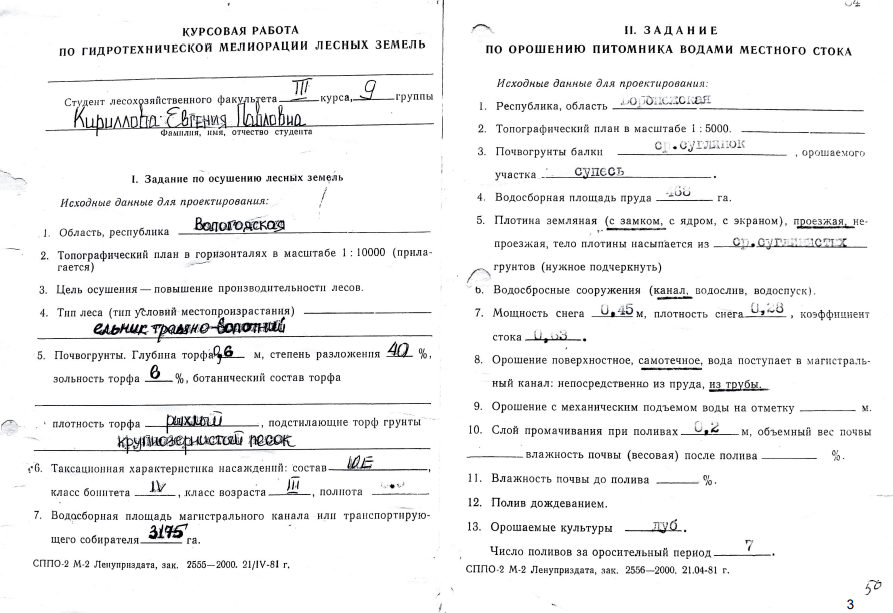 КУРСОВАЯ РАБОТА
ПО ГИДРОТЕХНИЧЕСКОЙ МЕЛИОРАЦИИ ЛЕСНЫХ ЗЕМЕЛЬ
Студент лесохозяйственного факультета III курса, 9 группы
Кириллова Евгения Павловна
Фамилия, имя, отчество студента
I. Задание по осушению лесных земель
Исходные данные для проектирования:
1. Область, республика Вологодская
2. Топографический план в горизонталях в масштабе 1 : 10000 (прила-
гается)
3. Цель осушения — повышение производительности лесов.
4. Тип леса (тип условий местопроизрастания)
ельник травяно-болотный
5. Почвогрунты. Глубина торфа 0,6 м, степень разложения 40 %,
зольность торфа 6 %, ботанический состав торфа
плотность торфа рыхлый, подстилающие торф грунты
крупнозернистый песок
6. Таксационная характеристика насаждений: состав 10Е,
класс бонитета IV, класс возраста III, полнота
7. Водосборная площадь магистрального канала или транспортирую-
щего собирателя 3175 га.
СППО-2 М-2 Ленуприздата, зак. 2555—2000. 21/IV-81 г.
II. ЗАДАНИЕ
ПО ОРОШЕНИЮ ПИТОМНИКА ВОДАМИ МЕСТНОГО СТОКА
Исходные данные для проектирования:
1. Республика, область Воронежская
2. Топографический план в масштабе 1 : 5000.
3. Почвогрунты балки ср.суглинок, орошаемого
участка супесь.
4. Водосборная площадь пруда 468 га.
5. Плотина земляная (с замком, с ядром, с экраном), проезжая, не-
проезжая, тело плотины насыпается из ср.суглинистых
грунтов (нужное подчеркнуть)
6. Водосбросные сооружения (канал, водослив, водоспуск).
7. Мощность снега 0,45 м, плотность снега 0,28, коэффициент
стока 0,63.
8. Орошение поверхностное, самотечное, вода поступает в магистраль-
ный канал: непосредственно из пруда, из трубы.
9. Орошение с механическим подъемом воды на отметку м.
10. Слой промачивания при поливах 0,2 м, объемный вес почвы
влажность почвы (весовая) после полива %.
11. Влажность почвы до полива %.
12. Полив дождеванием.
13. Орошаемые культуры дуб.
Число поливов за оросительный период 7.
СППО-2 М-2 Ленуприздата, зак. 2556—2000. 21.04-81 г.
50
3